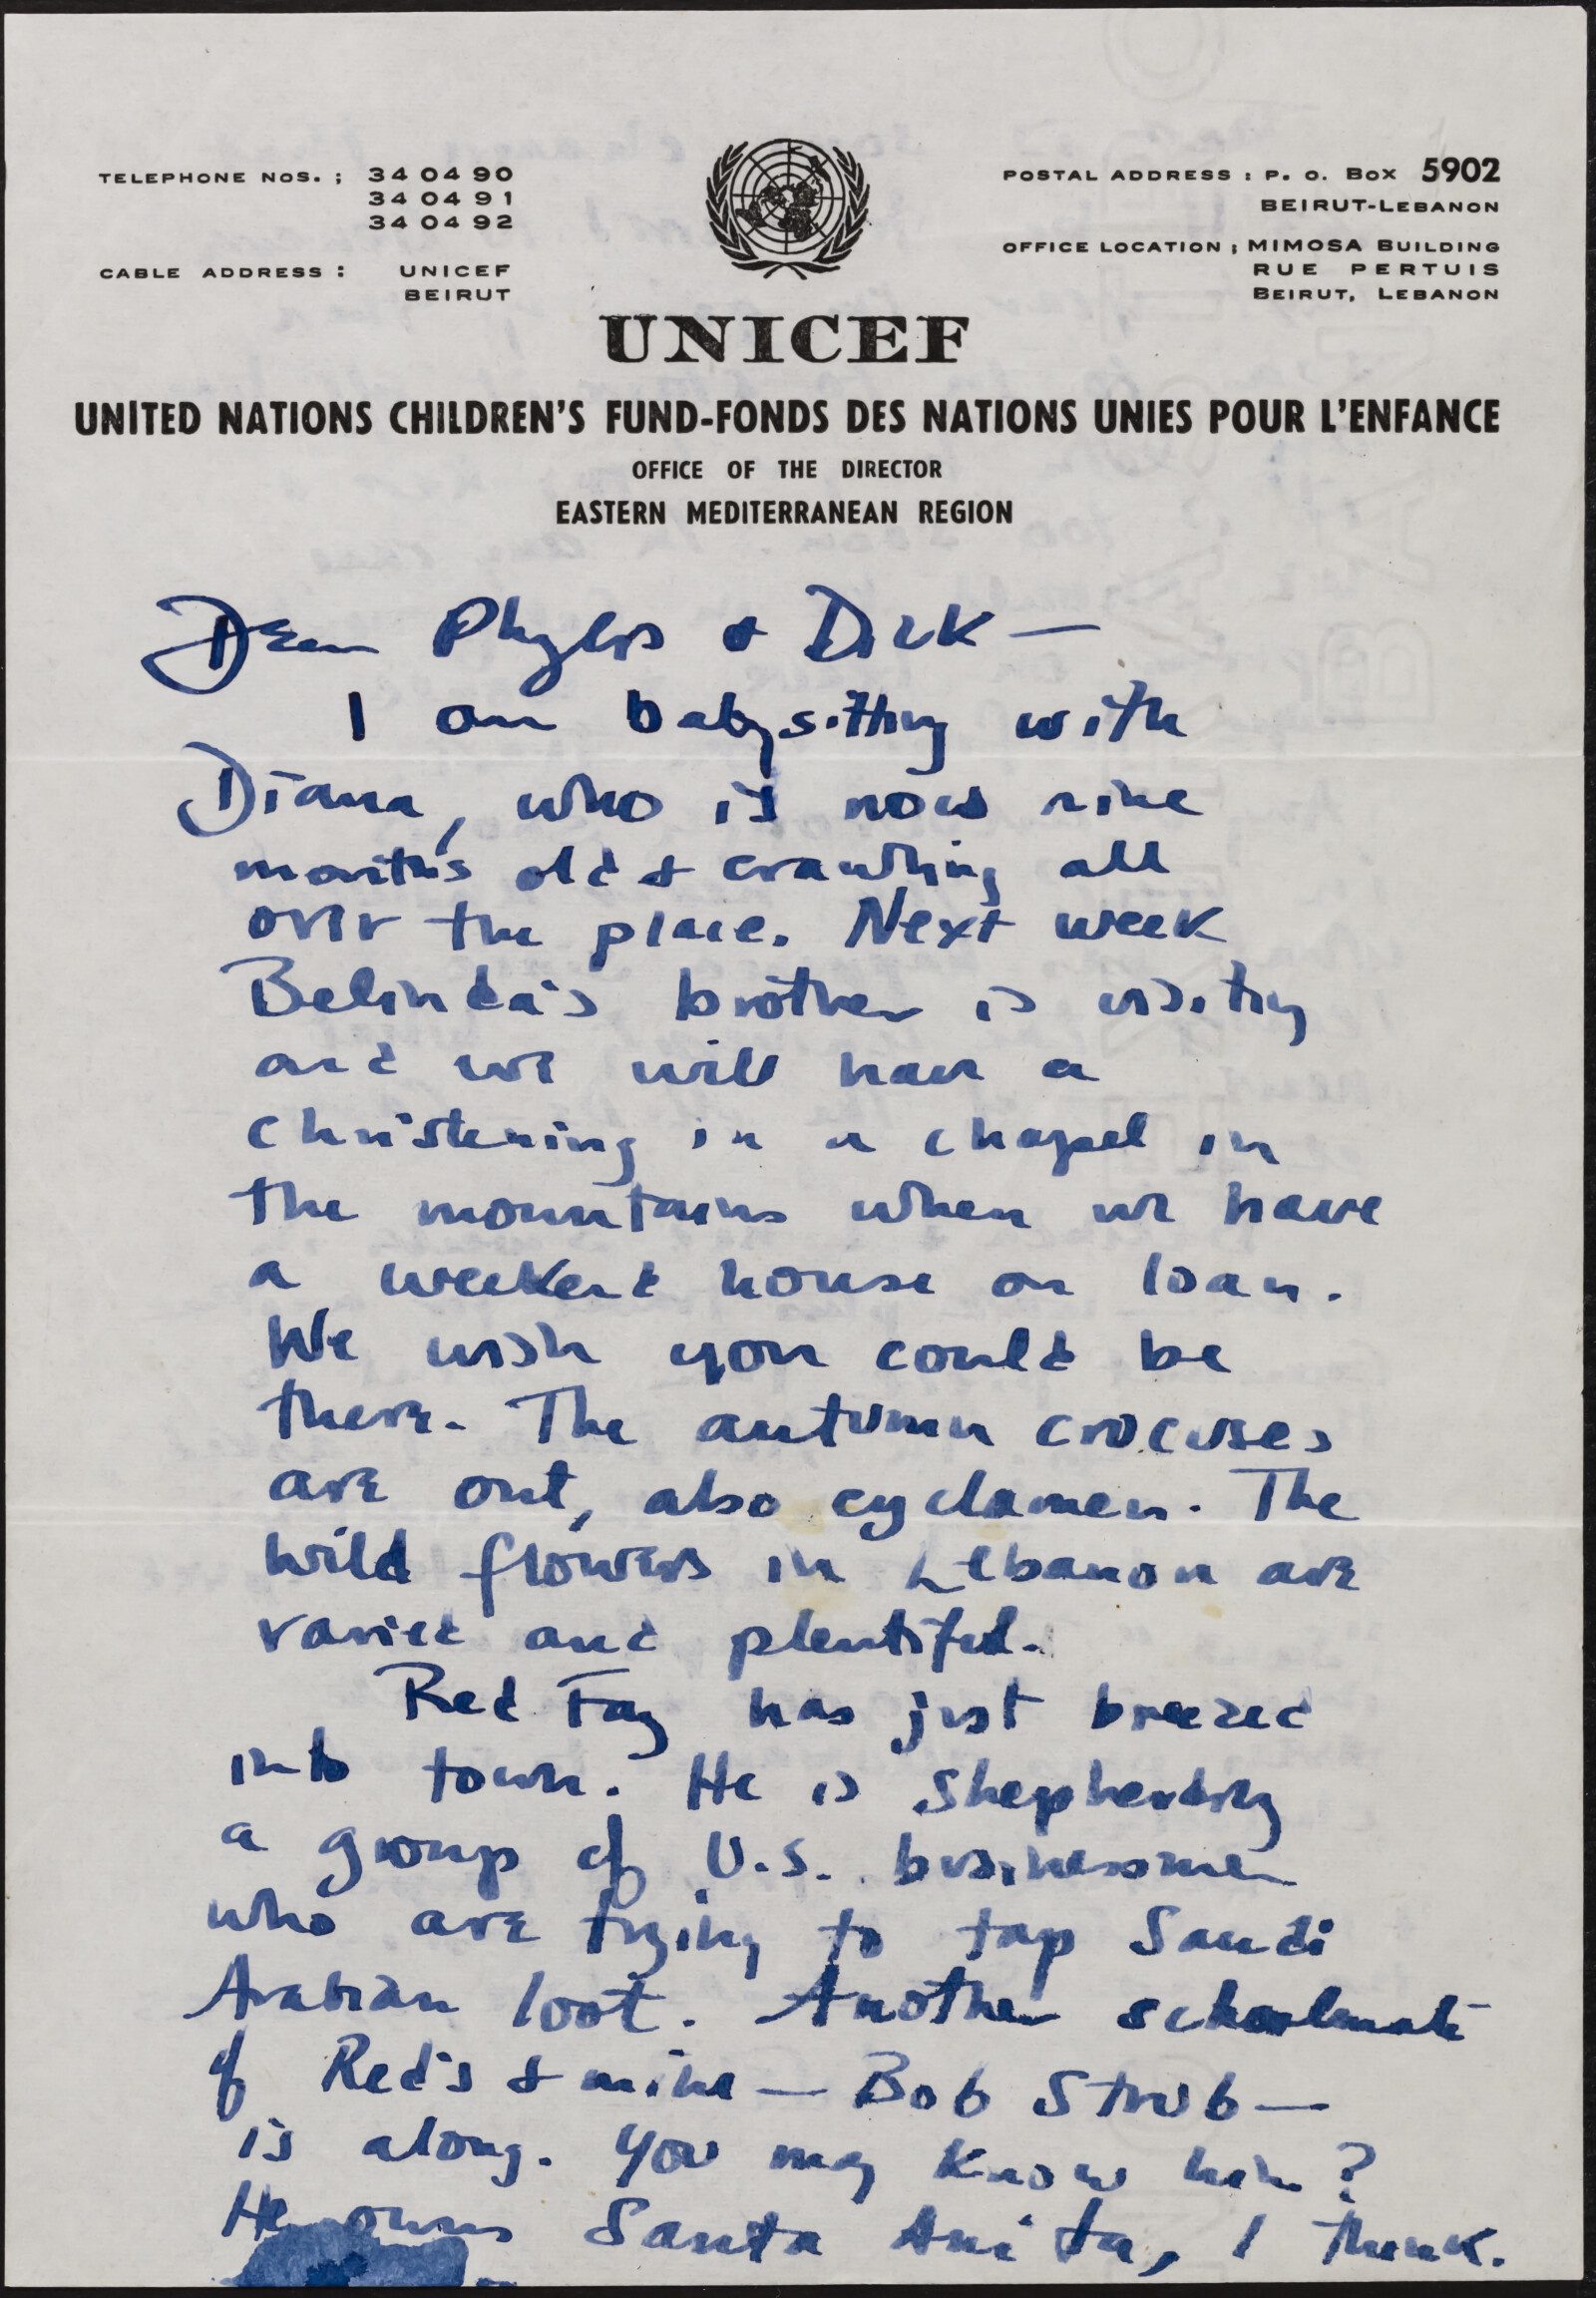 TELEPHONE NOS. : 34 04 90
34 04 91
34 04 92
CABLE ADDRESS : UNICEF
BEIRUT
POSTAL ADDRESS : P. O. BOX 5902
BEIRUT-LEBANON
OFFICE LOCATION ; MIMOSA BUILDING
RUE PERTUIS
BEIRUT, LEBANON
UNICEF
UNITED NATIONS CHILDREN'S FUND-FONDS DES NATIONS UNIES POUR L'ENFANCE
OFFICE OF THE DIRECTOR
EASTERN MEDITERRANEAN REGION
Dear Phyllis & Dick —
I am babysitting with
Diana, who is now nine
months old & crawling all
over the place. Next week
Belinda's brother is visiting
and we will have a
christening in a chapel in
the mountains when we have
a weekend house on loan.
We wish you could be
there. The autumn crocuses
are out, also cyclamen. The
wild flowers in Lebanon are
varied and plentiful.
Red Fay has just breezed
into town. He is shepherding
a group of U.S. businessmen
who are trying to tap Saudi
Arabian loot. Another schoolmate
of Red's & mine — Bob Strub —
is along. You may know him?
He owns Santa Anita, I think.